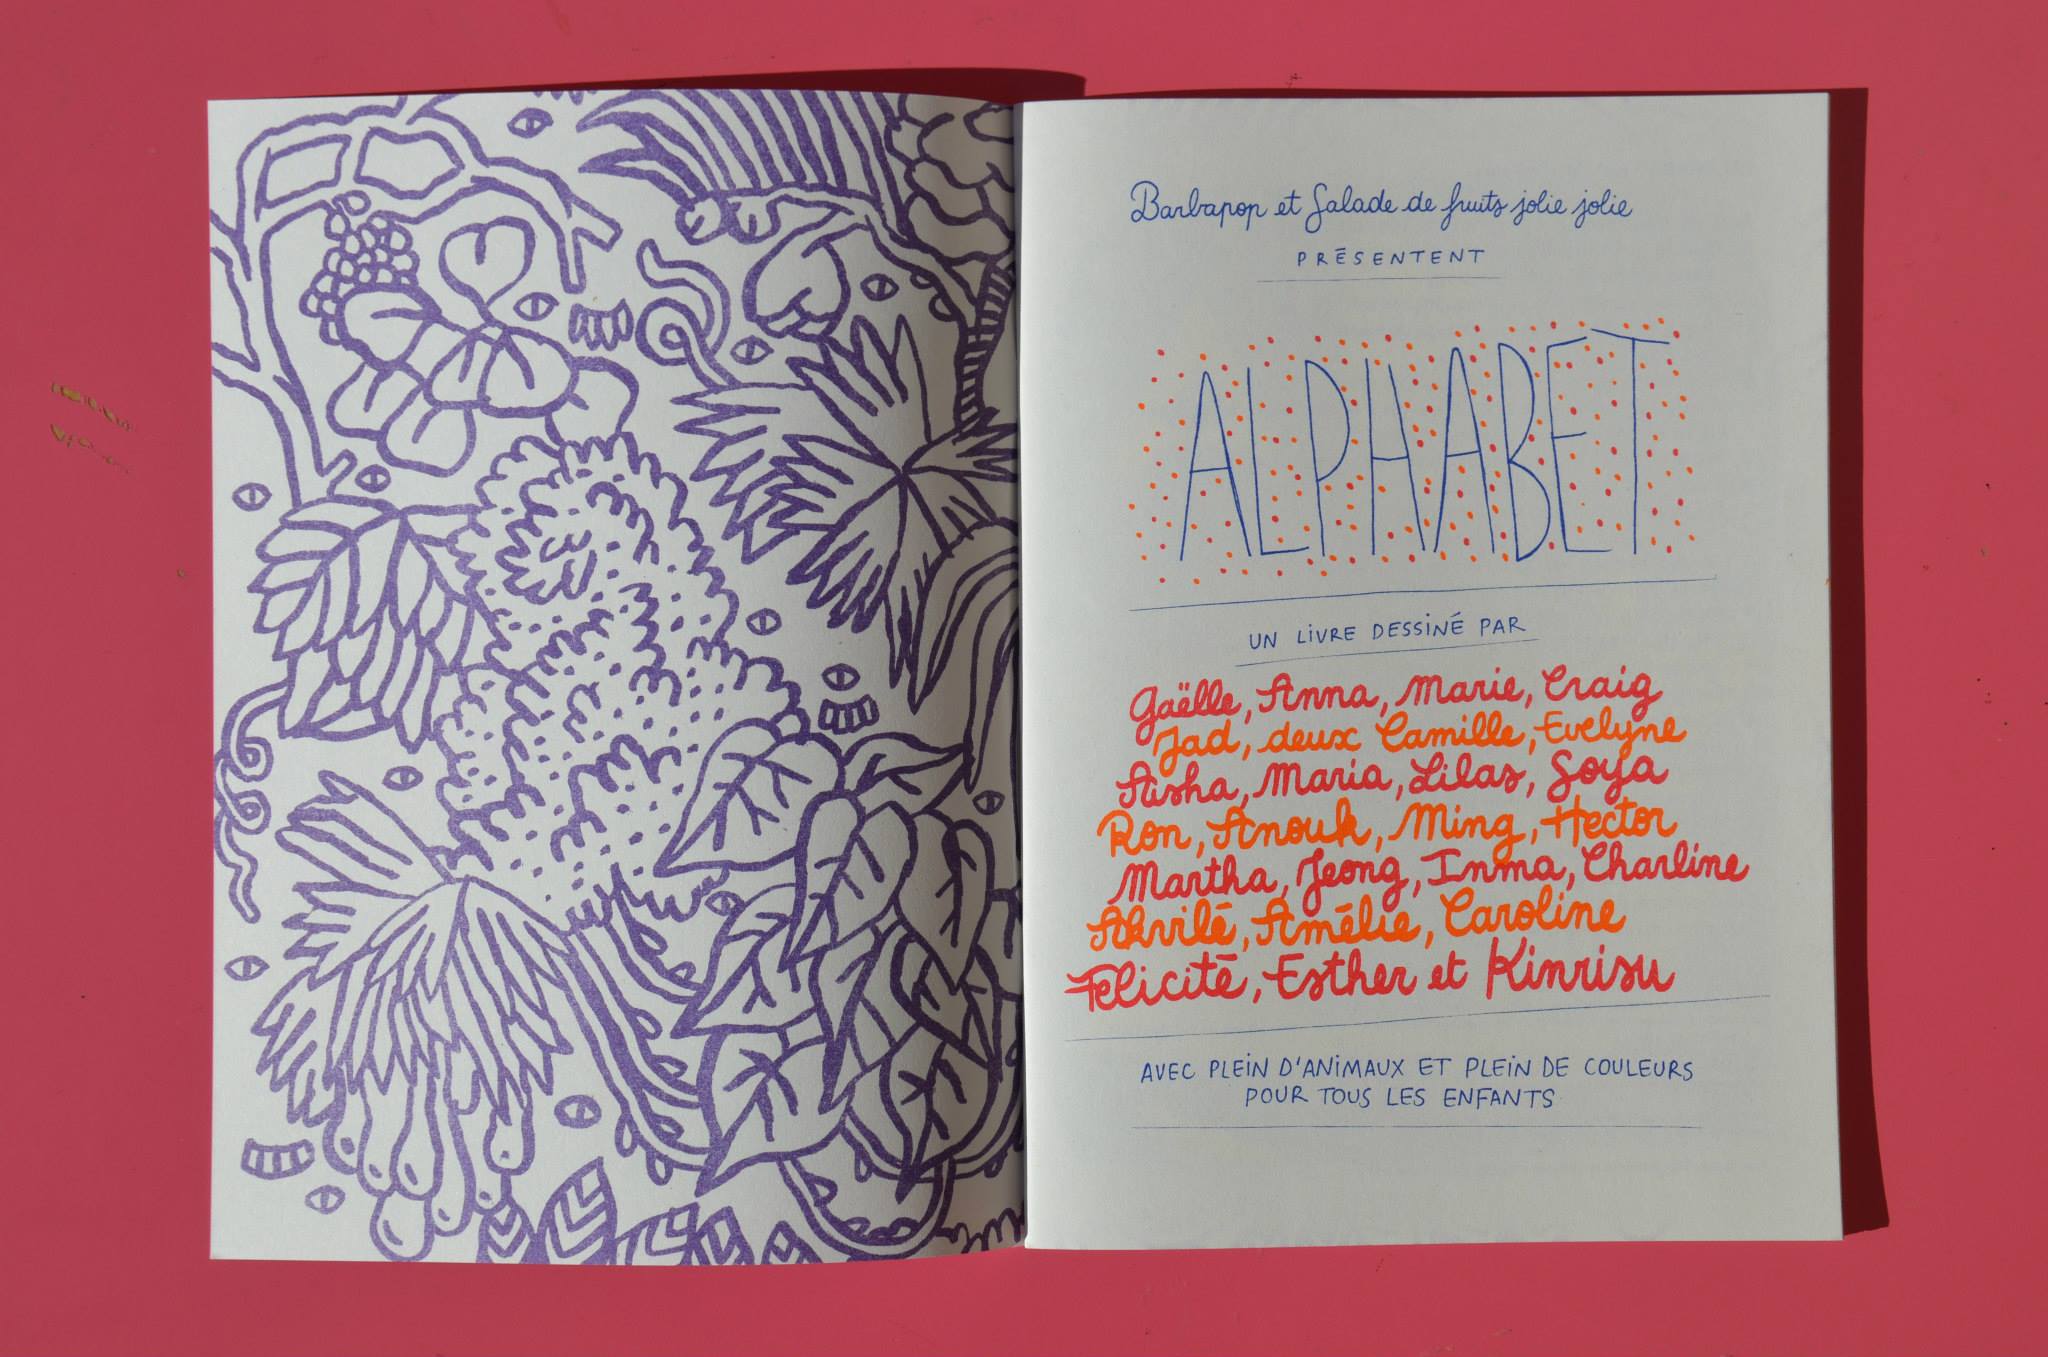 Barbapop et Salade de fruits jolie jolie
PRÉSENTENT
ALPHABET
UN LIVRE DESSINÉ PAR
Gaëlle, Anna, Marie, Craig
Jad, deux Camille, Evelyne
Sasha, Maria, Lilas, Soya
Ron, Anouk, Ming, Hector
Martha, Jeong, Inma, Charline
Akvilé, Amélie, Caroline
Felicité, Esther et Kinrisu
AVEC PLEIN D'ANIMAUX ET PLEIN DE COULEURS
POUR TOUS LES ENFANTS